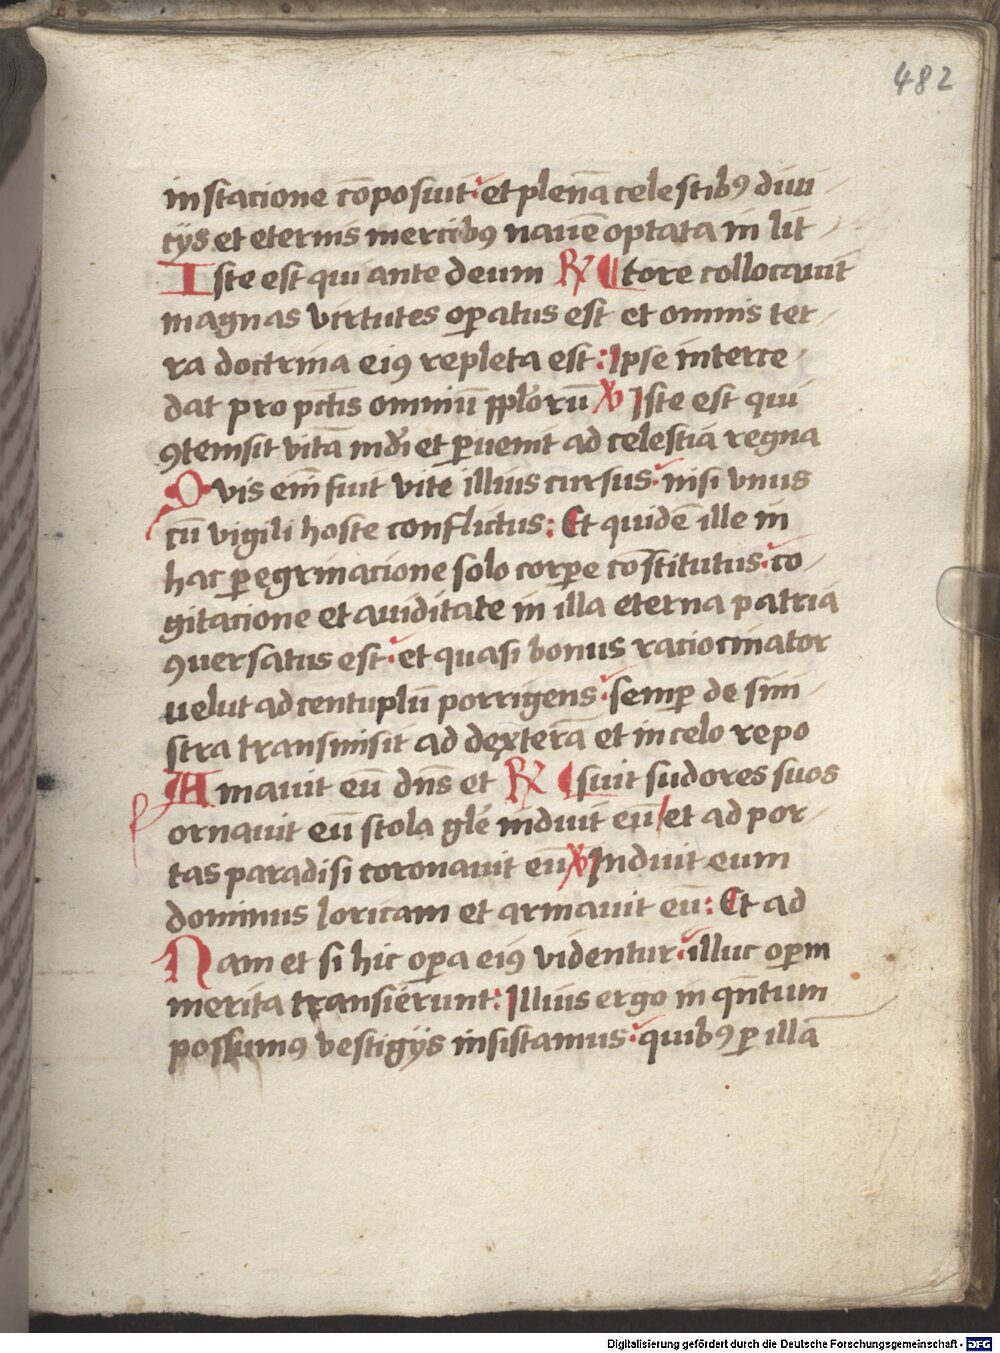 482
in stacione cōposuit: et plenā celestibꝰ diui-
cijs et eternis mercibꝰ nauē optata in lit-
Iste est qui ante deum ℟ ¶tore collocauit
magnas virtutes oꝑatus est et omnis ter-
ra doctrina eiꝰ repleta est: Ipse interce-
dat pro pctīs omniū pplōrū ℣ Iste est qui
ꝯtemsit vitā mdī et ꝑuenit ad celestia regna
Qvis eīm fuit vite illius cursus: nisi vnus
cū vigili hoste conflictus: Et quidē ille in
hac ꝑegrinacione solo corꝑe cōstitutus: co-
gitacione et auiditate in illa eterna patria
ꝯuersatus est: et quasi bonus raciocinator
velut ad centuplū porrigens: semꝑ de sini-
stra transmisit ad dexterā et in celo repo
Amauit eū dn̄s et ℟ ¶suit sudores suos
ornauit eū stola glē induit eū/ et ad por-
tas paradisi coronauit eū ℣ Induit eum
dominus loricam et armauit eū: Et ad
Nam et si hic oꝑa eiꝰ videntur: illuc oꝑm
merita transierunt: Illius ergo in qn̄tum
possumꝰ vestigijs insistamus: quibꝰ ꝑ illā
Digitalisierung gefördert durch die Deutsche Forschungsgemeinschaft - DFG